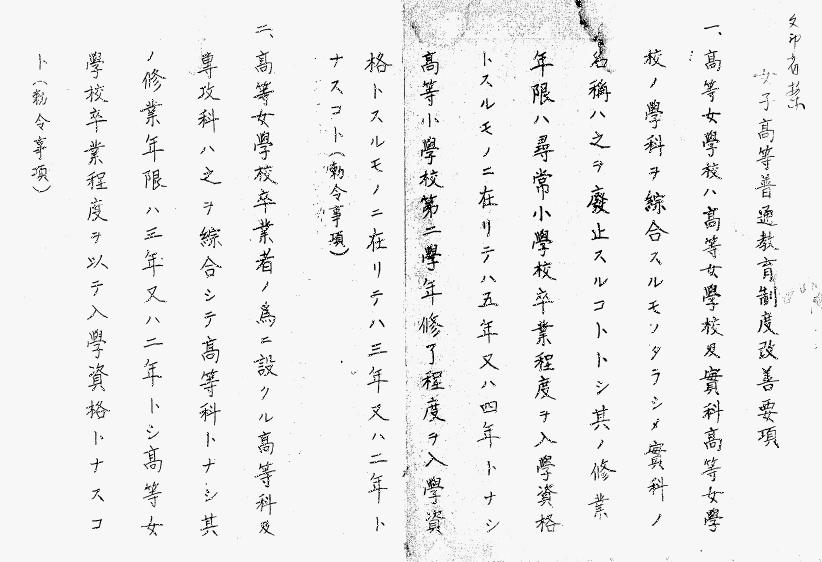 文部省案
女子高等普通教育制度改善要項
一、高等女學校ハ高等女學校及實科高等女學
校ノ學科ヲ綜合スルモノタラシメ實科ノ
名稱ハ之ヲ廢止スルコトトシ其ノ修業
年限ハ尋常小學校卒業程度ヲ入學資格
トスルモノニ在リテハ五年又ハ四年トナシ
高等小學校第二學年修了程度ヲ入學資
格トスルモノニ在リテハ三年又ハ二年ト
ナスコト(勅令事項)
二、高等女學校卒業者ノ爲ニ設クル高等科及
專攻科ハ之ヲ綜合シテ高等科トナシ其
ノ修業年限ハ三年又ハ二年トシ高等女
學校卒業程度ヲ以テ入學資格トナスコ
ト(勅令事項)